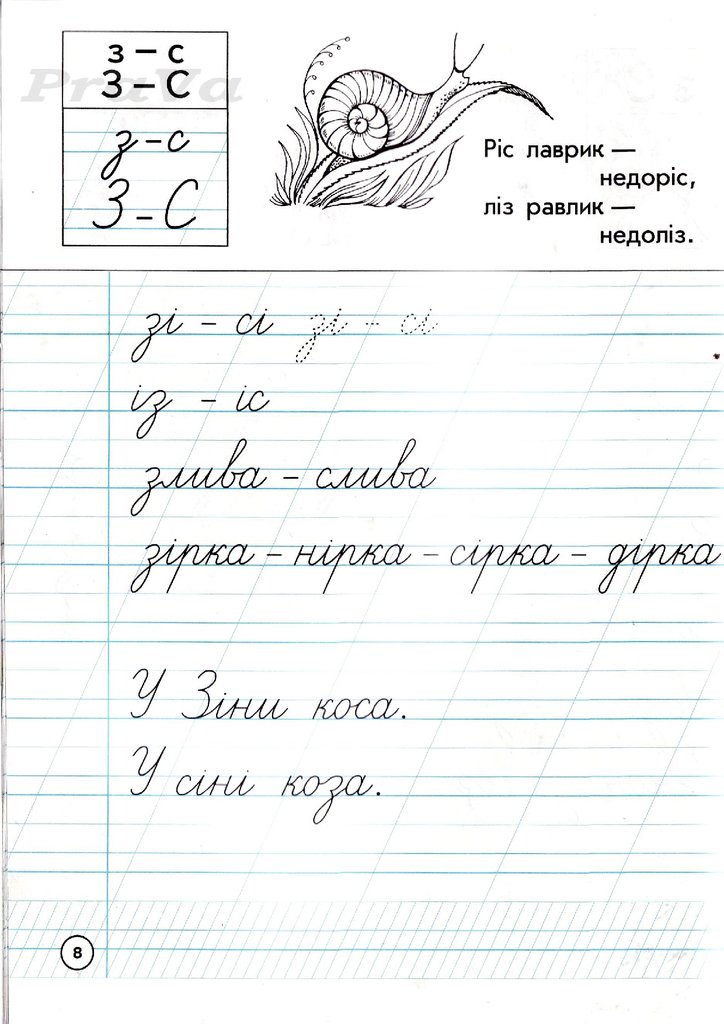 з – с
З – С
з – с
З – С
PraVa
Ріс лаврик —
недоріс,
ліз равлик —
недоліз.
зі – сі зі – сі
із – іс
злива – слива
зірка – нірка – сірка – дірка
У Зіни коса.
У сіні коза.
8